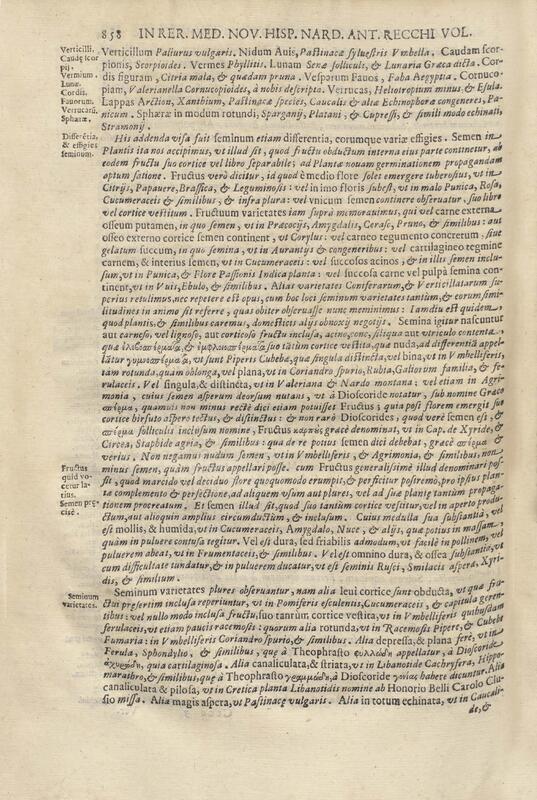 858 IN RER. MED. NOV. HISP. NARD. ANT. RECCHI VOL.
Verticilli.
Caudę scorpij.
Vermium.
Lunæ.
Cordis.
Fauorum.
Verrucarū.
Sphæræ.
Verticillum Paliurus vulgaris. Nidum Auis, Pastinaca syluestris Vmbella. Caudam scor-
pionis, Scorpioides. Vermes Phyllitis. Lunam Senæ folliculs, & Lunaria Græca dicta. Cor-
dis figuram, Citria mala, & quædam pruna. Vesparum Fauos, Faba Aegyptia. Cornuco-
piam, Valerianella Cornucopioides, à nobis descripta. Verrucas, Heliotropium minus & Esula.
Lappas Arction, Xanthium, Pastinacæ species, Caucalis & aliæ Echinophoræ congeneres, Pa-
nicum. Sphæræ in modum rotundi, Sparganij, Platani, & Cupressi, & simili modo echinati,
Stramonij.
Differētia, & effigies seminum.
His addenda visa fuit seminum etiam differentia, eorumque variæ effigies. Semen in
Plantis ita nos accipimus, vt illud sit, quod fructu obductum interna eius parte continetur, ab
eodem fructu suo cortice vel libro separabile; ad Plantæ nouam germinationem propagandam
optum satione. Fructus verò dicitur, id quod è medio flore solet emergere tuberosius, vt in
Citrijs, Papauere, Brassica, & Leguminosis: vel in imo floris subest, vt in malo Punica, Rosa,
Cucumeraceis & similibus, & infra plura: vel vnicum semen continere obseruatur, suo libro
vel cortice vestitum. Fructuum varietates iam suprà memorauimus, qui vel carne externa
osseum putamen, in quo semen, vt in Præcocijs, Amygdalis, Ceraso, Pruno, & similibus: aut
osseo externo cortice semen continent, vt Corylus: vel carneo tegumento concretum, siue
gelatum succum, in quo semina, vt in Aurantys & congeneribus: vel cartilagineo tegmine
carnem, & interius semen, vt in Cucumeraceis: vel succosos acinos, & in illis semen inclu-
sum, vt in Punica, & Flore Passionis Indica planta: vel succosa carne vel pulpa semina con-
tinent, vt in Vuis, Ebulo, & similibus. Alias varietates Coniferarum, & Verticillatarum su-
perius retulimus, nec repetere est opus, cum hoc loci seminum varietates tantùm, & eorum simi-
litudines in animo sit referre, quas obiter obseruasse nunc meminimus: Iamdiu est quidem,
quod plantis, & similibus caremus, domesticis alijs obnoxij negotijs. Semina igitur nascuntur
aut carneso, vel lignoso, aut corticoso fructu inclusa, acino, cono, siliqua aut vtriculo contenta,
suo tātùm cortice vestita, quæ nuda, ad differentiā appel-
lātur vt sunt Piperis Cubebæ, quæ singula distincta, vel bina, vt in Vmbelliferis,
tam rotunda, quam oblonga, vel plana, vt in Coriandro spurio, Rubia, Galiorum familia, & fe-
rulaceis. Vel singula, & distincta, vt in Valeriana & Nardo montana; vel etiam in Agri-
monia, cuius semen asperum deorsum nutans, vt à Dioscoride notatur, sub nomine Græco
σπέρμα, quamuis non minus rectè dici etiam potuisset Fructus; quia post florem emergit suo
cortice hirsuto aspero tectus, & distinctus: & non rarò Dioscorides, quod verè semen est, &
σπέρμα folliculis inclusum nomine, Fructus καρπὸς græcè denominat, vt in Cap. de Xyride, &
Circæa, Staphide agria, & similibus: qua de re potius semen dici debebat, græcè σπέρμα &
verius. Non negamus nudum semen, vt in Vmbelliferis, & Agrimonia, & similibus, non
Fructus quid vocetur latius.
minus semen, quàm fructus appellari posse. cum Fructus generalissimè illud denominari pos-
sit, quod marcido vel deciduo flore quoquomodo erumpit, & perficitur postremò, pro ipsius plan-
tæ complemento & perfectione, ad aliquem vsum aut plures, vel ad suæ plantæ tantùm propaga-
Semen pręcisè.
tionem procreatum. Et semen illud sit, quod suo tantùm cortice vestitur, vel in aperto produ-
ctum, aut alioquin amplius circumductum, & inclusum. Cuius medulla sua substantia, vel
est mollis, & humida, vt in Cucumeraceis, Amygdalo, Nuce, & alijs, quæ potius in massam,
quàm in puluere contusa tegitur. Vel est dura, sed friabilis admodum, vt facilè in pollinem, vel
puluerem abeat, vt in Frumentaceis, & similibus. Vel est omnino dura, & ossea substantia, vt
cum difficultate tundatur, & in puluerem ducatur, vt est seminis Rusci, Smilacis asperæ, Xyri-
dis, & similium.
Seminum varietates.
Seminum varietates plures obseruantur, nam alia leui cortice sunt obducta, vt quæ fru-
ctus præsertim inclusa reperiuntur, vt in Pomiferis esculentis, Cucumeraceis, & capitula geren-
tibus: vel nullo modo inclusa fructu, suo tantùm cortice vestita, vt in Vmbelliferis quibusdam
ferulaceis, vt etiam paucis racemosis: quorum alia rotunda, vt in Racemosis Pipere, & Cubebe
Fumaria: in Vmbelliferis Coriandro Spurio, & similibus. Alia depressa, & plana ferè, vt in
Ferula, Sphondylio, & similibus, quę à Theophrasto φυλλώδη appellatur, à Dioscoride
ἀχυρώδη, quia cartilaginosa. Alia canaliculata, & striata, vt in Libanotide Cachryfera, Hippo-
marathro, & similibus, quę à Theophrasto γραμμώδη, à Dioscoride habere dicuntur. Alia
canaliculata & pilosa, vt in Cretica planta Libanotidis nomine ab Honorio Belli Carolo Clu-
sio missa. Alia magis aspera, vt Pastinaca vulgaris. Alia in totum echinata, vt in Caucali-
de, &